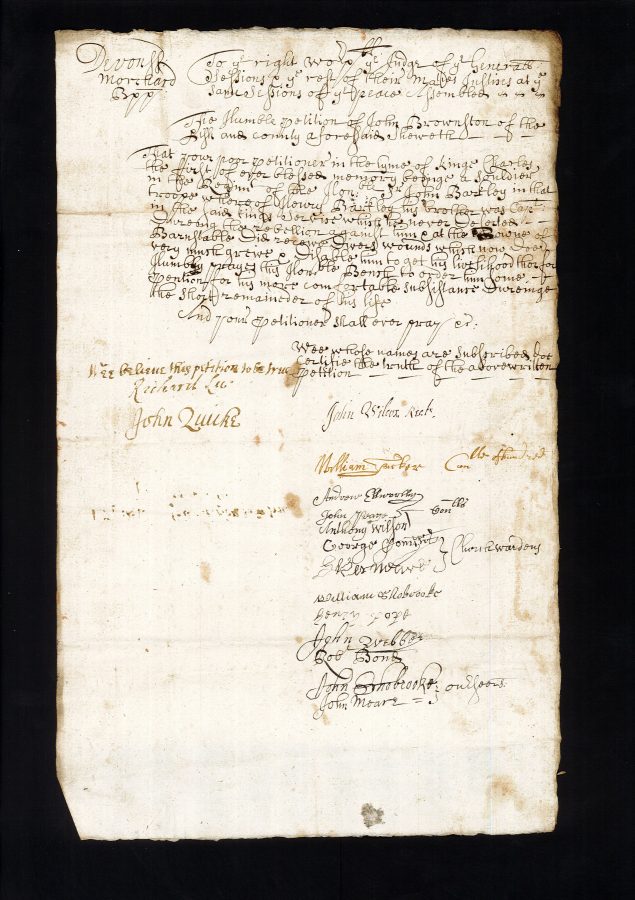 Devonss
Morchard
Bpp
To ye right worpll ye Judge of ye Generall
Sessions & ye rest of their Maties Justices at ye
same Sessions of ye peace Assembled
The Humble petition of John Brownston of the
psh and county aforesaid Sheweth
That your poor petitioner in the tyme of Kinge Charles
the first of ever blessed memory beinge a Souldier
in the Regimt of the Honble Sr John Barkley in that
troope whereof Henry Barkley his brother was Capt
in the said kings Service which hee never deserted
Dureing the rebellion against him & at the Towne of
Barnstable did receive divers wounds which now doe
very much greive & disable him to get his livelihood therefore
Humbly prayes this Honble Bench to order him some
Pention for his more comfortable Subsistance Dureinge
the short remainder of his life
And your petitioner shall ever pray &c:
Wee whose names are Subscribed doe
Certifie the truth of the abovewritten
Petition
Wee believe this petition to be true
Richard Lee
John Quicke
John Wilcox Rectr.
William Tucker Conble of hundred
Andrew Elworthy
John Conblls
Anthony Wilson
George
Churchwardens
Peter Meare
William Shobrooke
Henry Pope
John Webber
Rob Bond
John Shobrooke overseers
John Meare